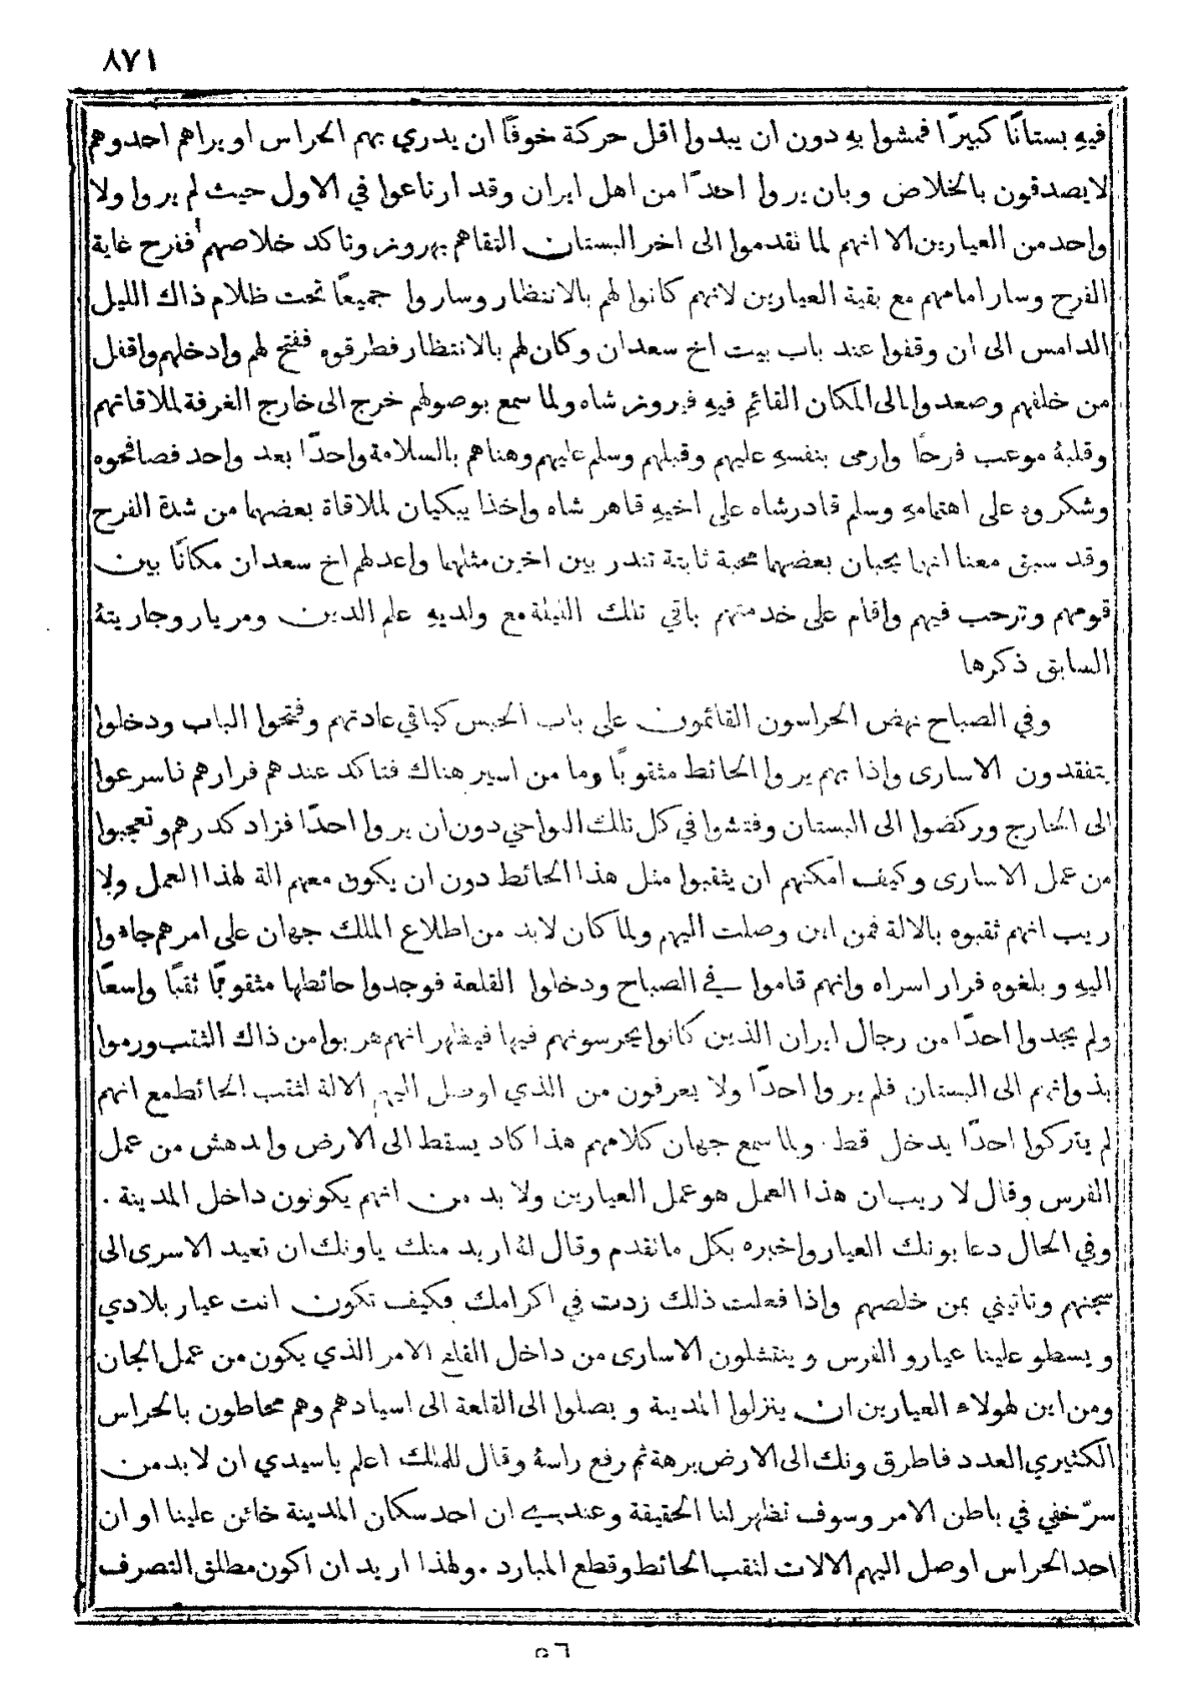 ٨٧١
فيهِ بستانًا كبيرًا فمشوا بهِ دون ان يبدوا اقل حركة خوفًا ان يدري بهم الحراس او يراهم احد وهم
لا يصدقون بالخلاص وبان يروا احدًا من اهل ايران وقد ارتاعوا في الاول حيث لم يروا ولا
واحد من العيارين الا انهم لما تقدموا الى اخر البستان التقاهم بهروز وتاكد خلاصهم ففرح غاية
الفرح وسار امامهم مع بقية العيارين لانهم كانوا لهم بالانتظار وساروا جميعًا تحت ظلام ذاك الليل
الدامس الى ان وقفوا عند باب بيت اخ سعدان وكان لهم بالانتظار فطرقوه ففتح لهم وادخلهم واقفل
من خلفهم وصعدوا الى المكان القائم فيهِ فيروز شاه ولما سمع بوصولهم خرج الى خارج الغرفة لملاقاتهم
وقلبهُ موعب فرحًا وارمى بنفسهِ عليهم وقبلهم وسلم عليهم وهناهم بالسلامة واحدًا بعد واحد فصافحوه
وشكروه على اهتمامهِ وسلم قادرشاه على اخيهِ قاهر شاه واخذا يبكيان لملاقاة بعضهما من شدة الفرح
وقد سبق معنا انهما يحبان بعضهما محبة ثابتة تندر بين اخين مثلهما واعد لهم اخ سعدان مكانًا بين
قومهم وترحب فيهم واقام على خدمتهم باقي تلك الليلة مع ولديهِ علم الدين ومريار وجاريتهُ
السابق ذكرها
وفي الصباح نهض الحراسون القائمون على باب الحبس كباقي عادتهم وفتحوا الباب ودخلوا
يتفقدون الاسارى واذا بهم يروا الحائط مثقوبًا وما من اسير هناك فتاكد عندهم فرارهم فاسرعوا
الى الخارج وركضوا الى البستان وفتشوا في كل تلك النواحي دون ان يروا احدًا فزاد كدرهم وتعجبوا
من عمل الاسارى وكيف امكنهم ان يثقبوا مثل هذا الحائط دون ان يكون معهم الة لهذا العمل ولا
ريب انهم ثقبوه بالالة فمن اين وصلت اليهم ولما كان لابد من اطلاع الملك جهان على امرهم جاءوا
اليهِ وبلغوه فرار اسراه وانهم قاموا في الصباح ودخلوا القلعة فوجدوا حائطها مثقوبًا ثقبًا واسعًا
ولم يجدوا احدًا من رجال ايران الذين كانوا يحرسونهم فيها فيظهر انهم هربوا من ذاك الثقب ورموا
بذواتهم الى البستان فلم يروا احدًا ولا يعرفون من الذي اوصل اليهم الالة لثقب الحائط مع انهم
لم يتركوا احدًا يدخل قط . ولما سمع جهان كلامهم هذا كاد يسقط الى الارض واندهش من عمل
الفرس وقال لا ريب ان هذا العمل هو عمل العيارين ولا بد من انهم يكونون داخل المدينة .
وفي الحال دعا بونك العيار واخبره بكل ما تقدم وقال لهُ اريد منك ياونك ان تعيد الاسرى الى
سجنهم وتاتيني بمن خلصهم واذا فعلت ذلك زدت في اكرامك فكيف تكون انت عيار بلادي
ويسطو علينا عيارو الفرس وينتشلون الاسارى من داخل القلعة الامر الذي يكون من عمل الجان
ومن اين لهولاء العيارين ان ينزلوا المدينة ويصلوا الى القلعة الى اسيادهم وهم محاطون بالحراس
الكثيري العدد فاطرق ونك الى الارض برهة ثم رفع راسهُ وقال للملك اعلم ياسيدي ان لابد من
سرّ خفي في باطن الامر وسوف تظهر لنا الحقيقة وعندي ان احد سكان المدينة خائن علينا او ان
احد الحراس اوصل اليهم الالات لثقب الحائط وقطع المبارد . ولهذا اريد ان اكون مطلق التصرف
٥٦